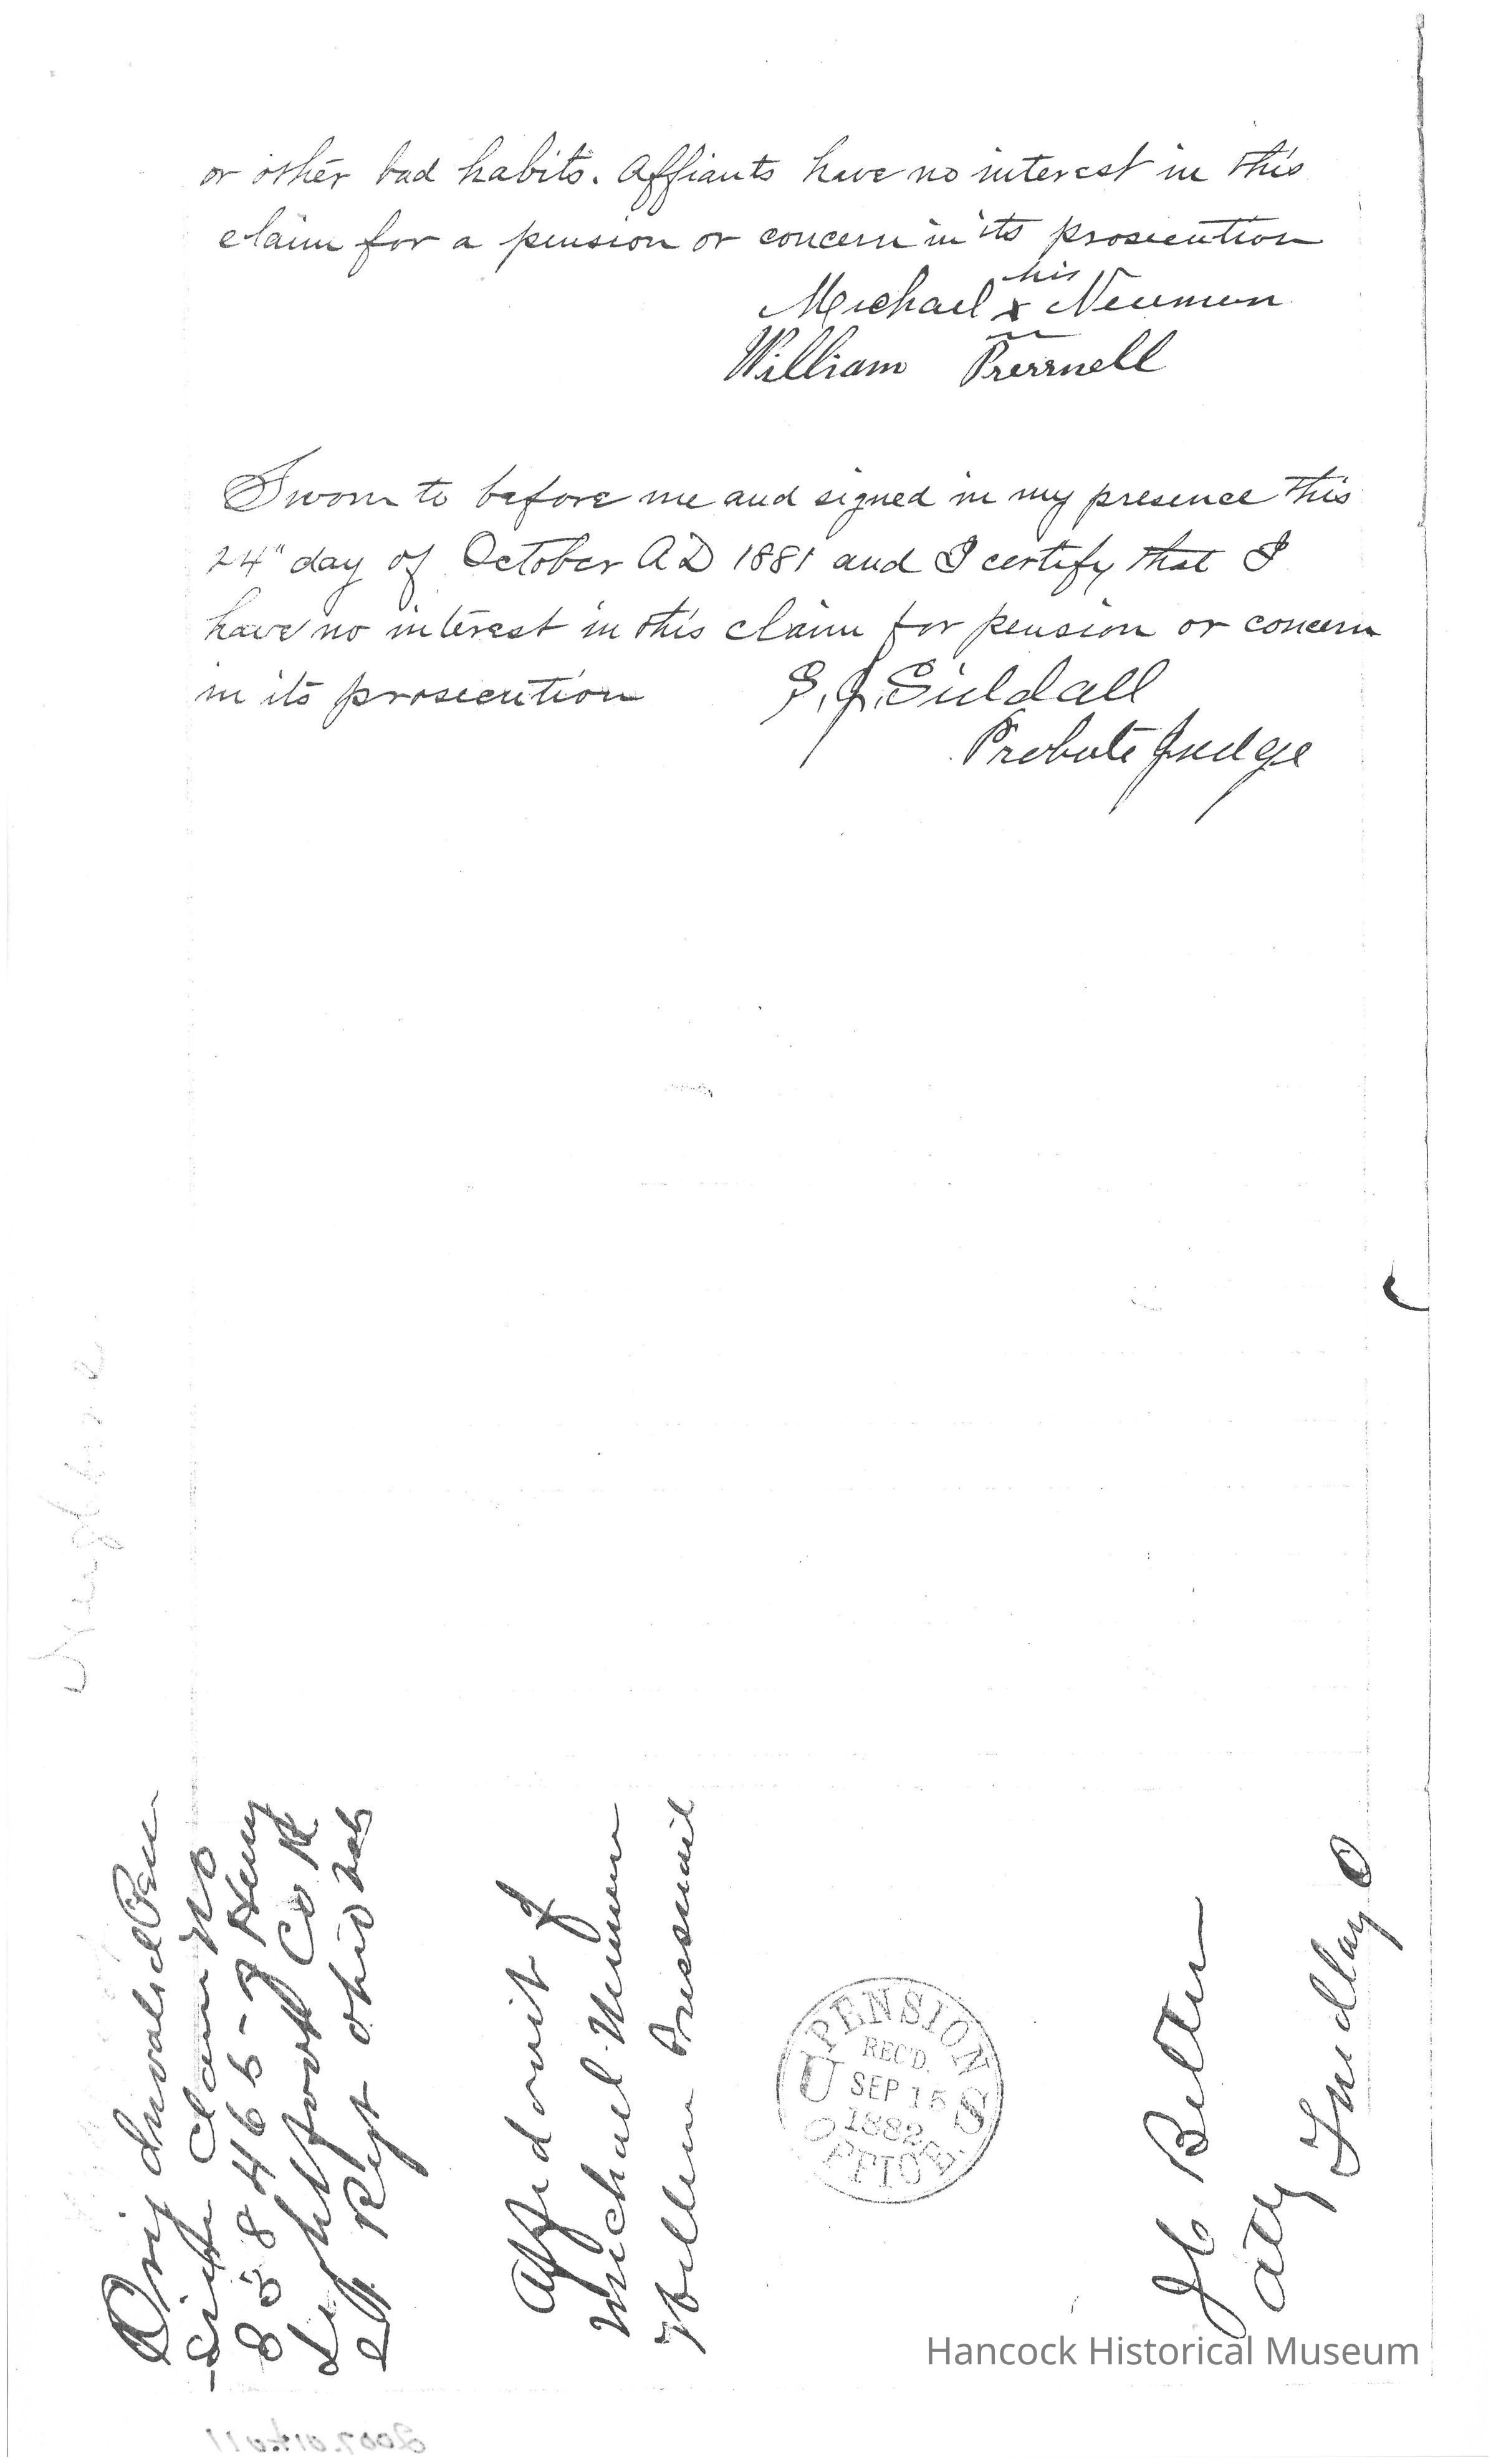 or other bad habits. Affiants have no interest in this
claim for a pension or concern in its prosecution
his
Michael x Neumon
William
Sworn to before me and signed in my presence this
24" day of October AD 1881 and I certify that I
have no interest in this claim for pension or concern
in its prosecution
Probate Judge
Orig Invalid Pen
Claim No
Henry
Lightfoot Co K
21 Regt Ohio
Affidavit of
Michael Neumon
William
PENSION OFFICE
U S
REC'D.
SEP 15
1882
Atty Findlay O
Hancock Historical Museum